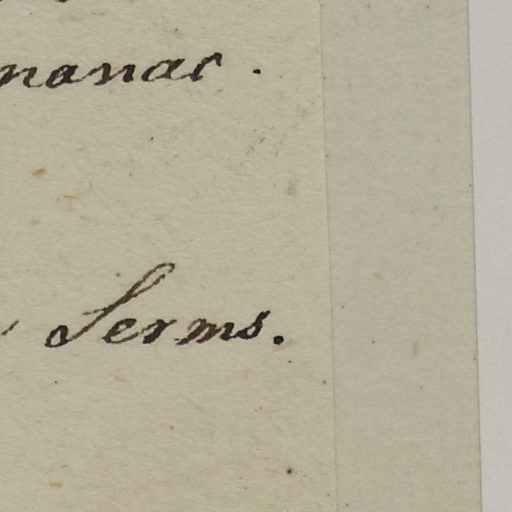 manac.
Serms.